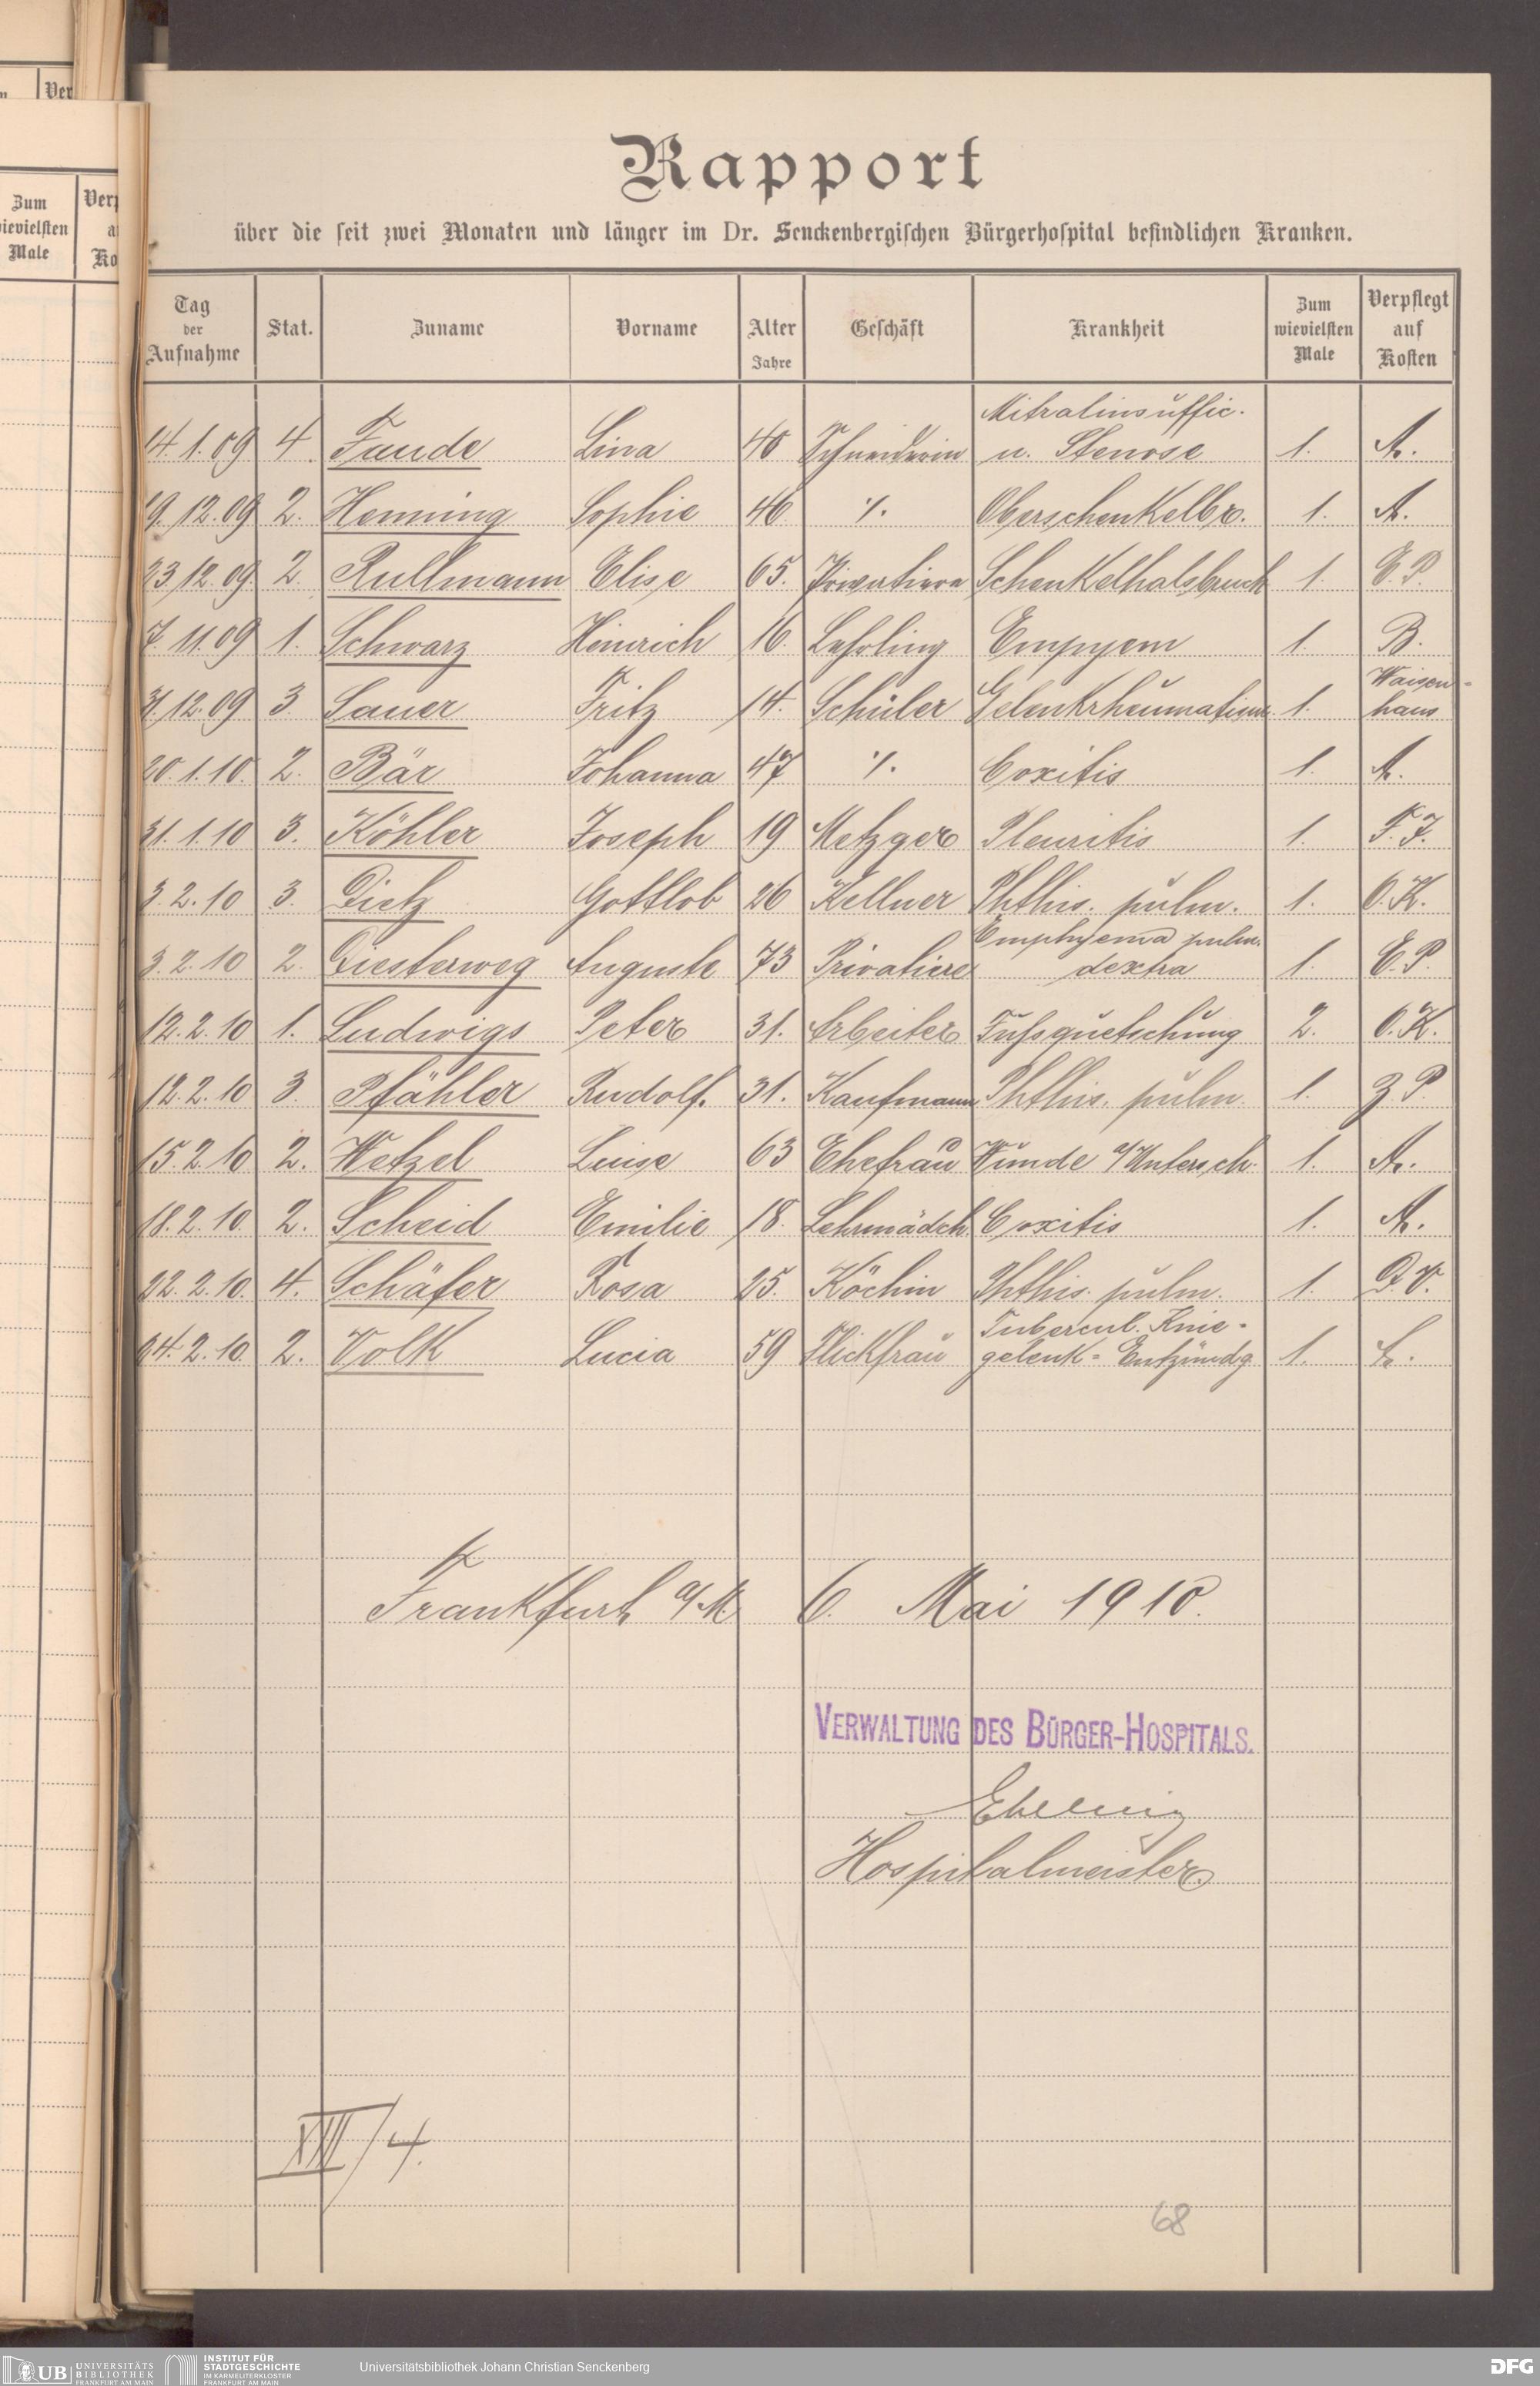 n
Ver
Zum
wievielsten
Male
Verp
a
Ko
Rapport
über die seit zwei Monaten und länger im Dr. Senckenbergischen Bürgerhospital befindlichen Kranken.
Tag der Aufnahme Stat. Zuname Vorname Alter Jahre Geschäft Krankheit Zum wievielsten Male Verpflegt auf Kosten
14.1.09 4. Faude Lina 40 Schneiderin Mitralinsuffic. u. Stenose 1. A.
19.12.09 2. Henning Sophie 46 ·/. Oberschenkelbr. 1. A.
23.12.09. 2. Rullmann Elise 65. Privatiere Schenkelhalsbruch 1. E.P.
7.11.09 1. Schwarz Heinrich 16. Lehrling Empyem 1. B.
31.12.09 3. Sauer Fritz 14. Schüler Gelenkrheumatism. 1. Waisen-haus
20.1.10. 2. Bär Johanna 47 ·/. Coxitis 1. A.
31.1.10 3. Köhler Joseph 19 Metzger Pleuritis 1. F.J.
3.2.10 3. Dietz Gottlob 26 Kellner Phthis. pulm. 1. O.K.
3.2.10 2. Diesterweg Auguste 73 Privatiere Emphyema pulm. dextra 1. E.P.
12.2.10 1. Ludwigs Peter 31. Arbeiter Fußquetschung 2. O.K.
12.2.10 3. Pfähler Rudolf. 31. Kaufmann Phthis. pulm. 1. Z.P.
15.2.10 2. Wetzel Luise 63 Ehefrau Wunde a/Untersch. 1. A.
18.2.10. 2. Scheid Emilie 18. Lehrmädch. Coxitis 1. A.
22.2.10. 4. Schäfer Rosa 25. Köchin Phthis. pulm. 1. D.V.
24.2.10. 2. Volk Lucia 59 Flickfrau Tubercul. Knie-gelenk-Entzündg 1.
Frankfurt a/M 6. Mai 1910.
VERWALTUNG DES BÜRGER-HOSPITALS.
Hospitalmeister
XIII/4.
68
UB UNIVERSITÄTS BIBLIOTHEK FRANKFURT AM MAIN
INSTITUT FÜR STADTGESCHICHTE IM KARMELITERKLOSTER FRANKFURT AM MAIN
Universitätsbibliothek Johann Christian Senckenberg
DFG